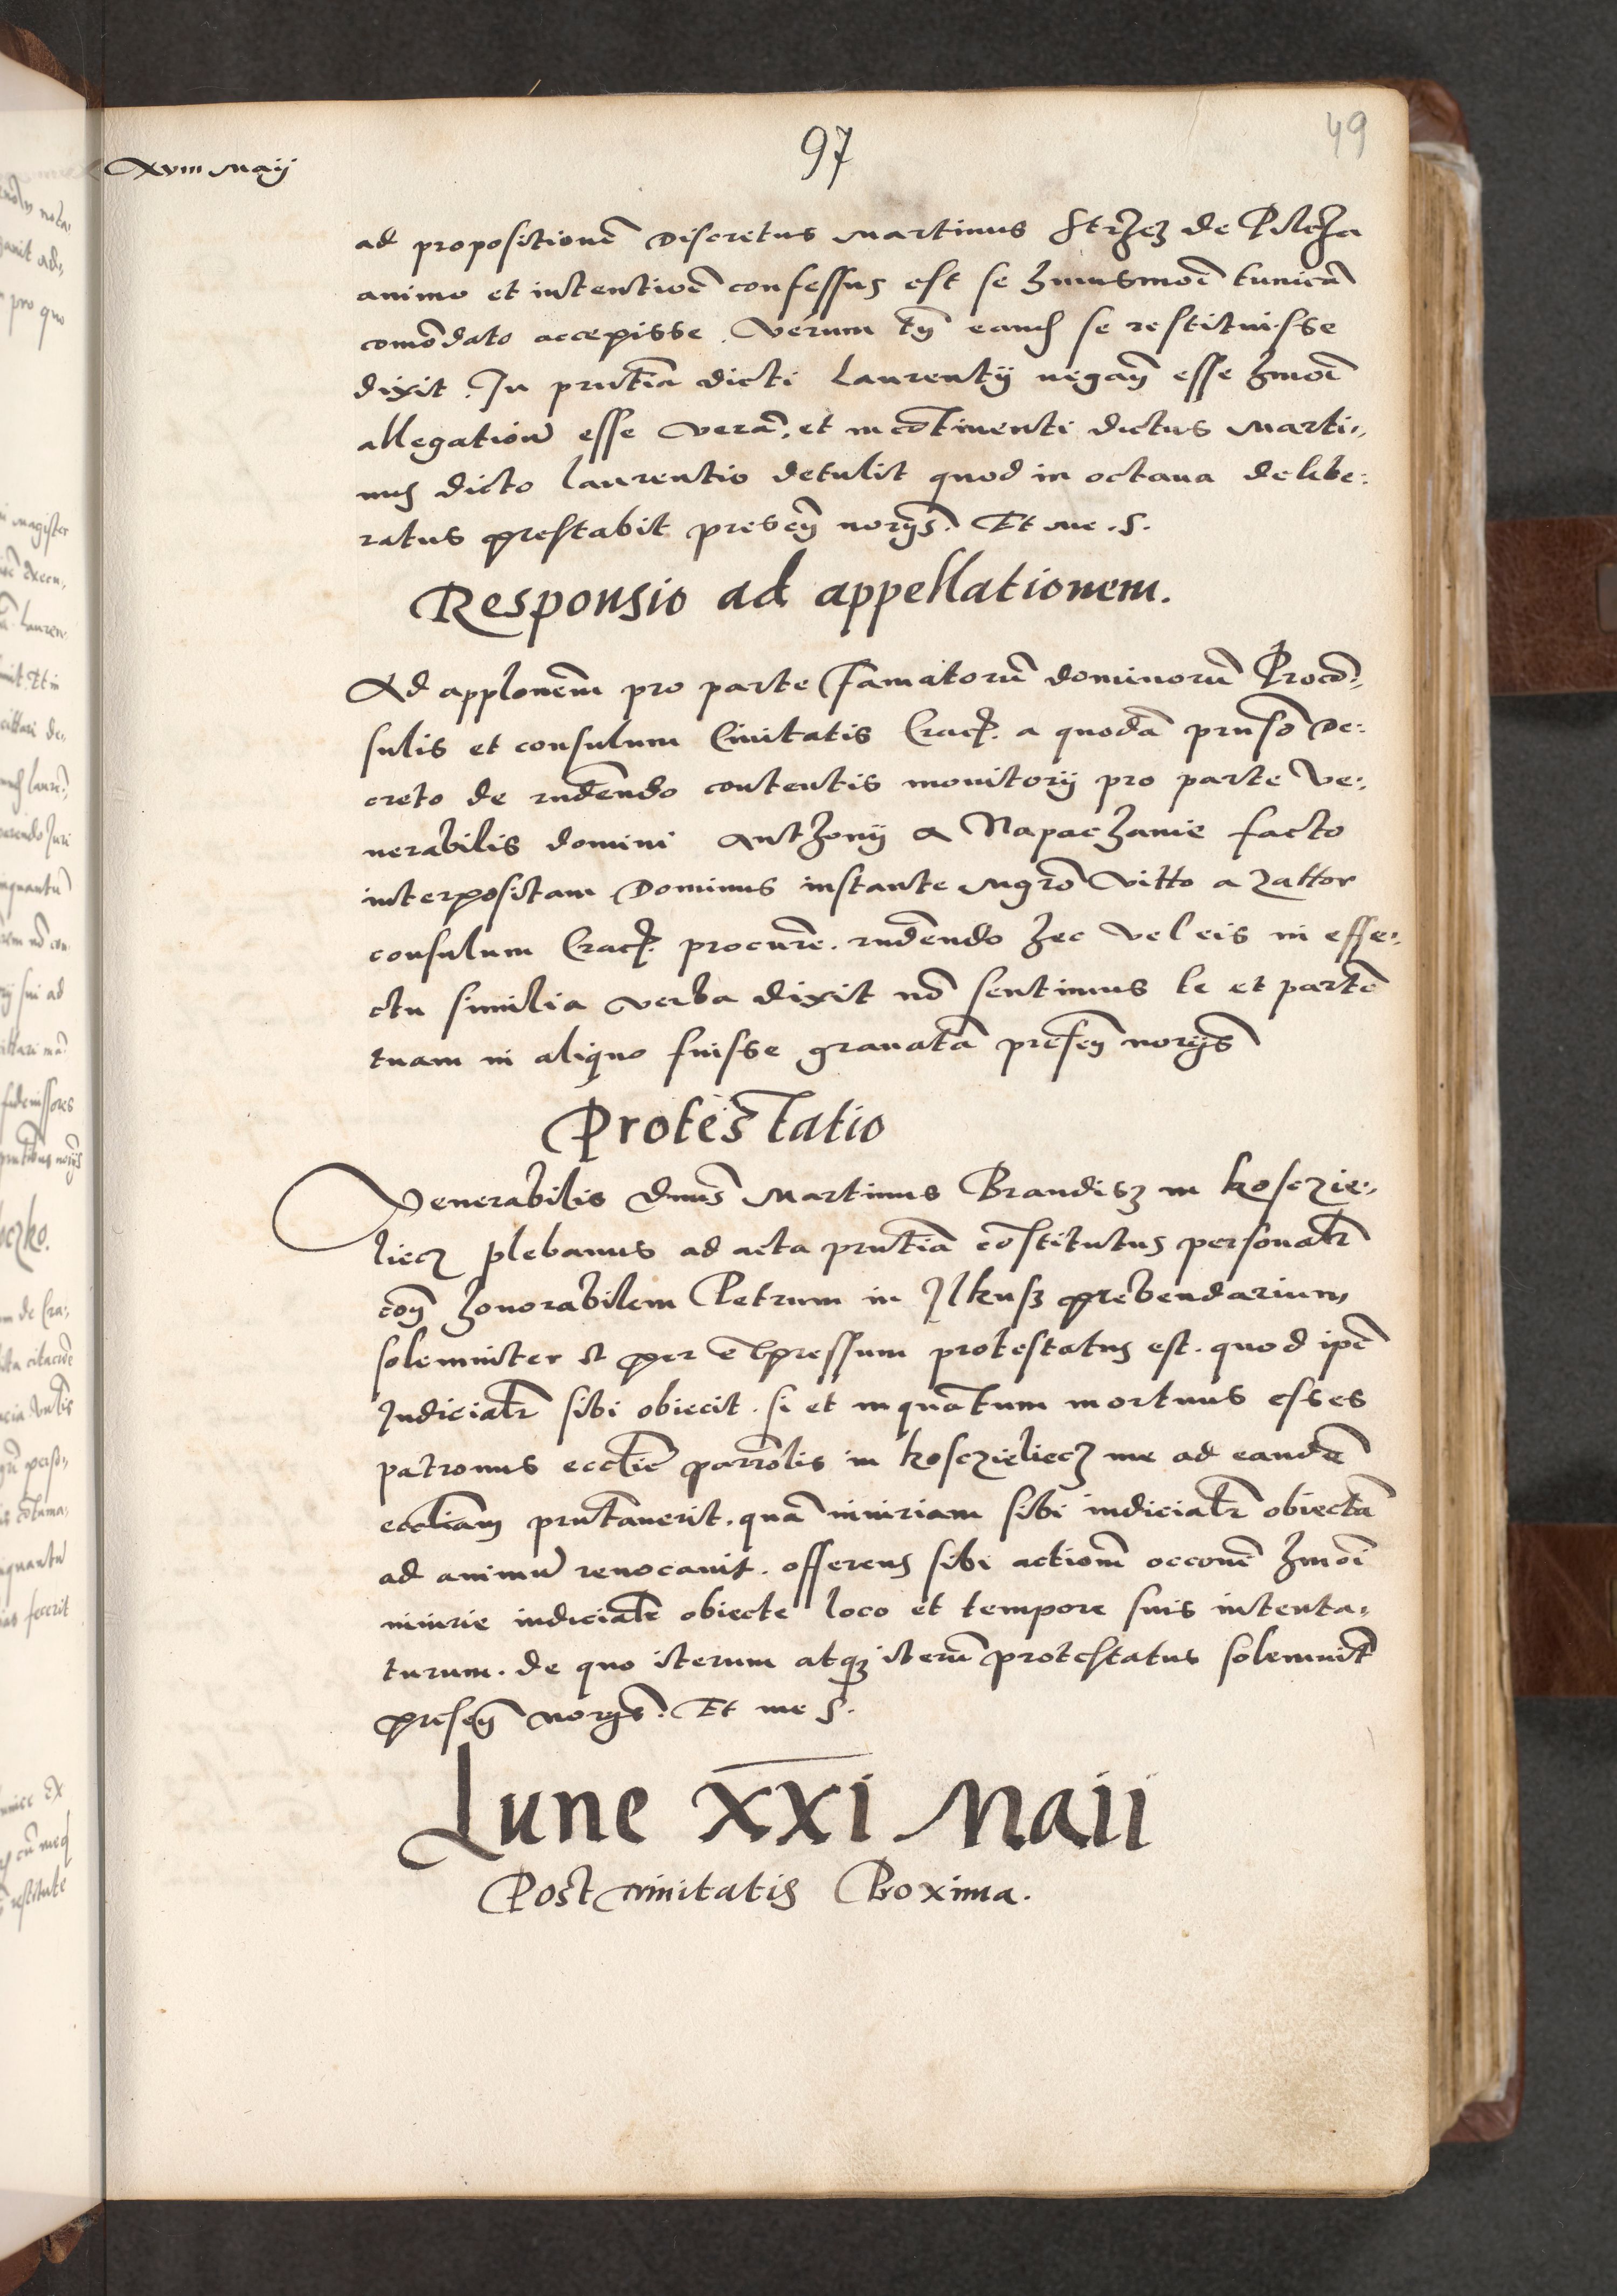 97
49
Xviii Maij
ad propositionē Discretus Martinus Strzez de Pilcza
animo et intentiōe confessus est se hmusmōi tunicā
comōdato accepisse. Verum tn̄ eand se restituisse
dixit. In pn̄tia dicti Laurentij negan̄ esse hmōi
allegationē esse verā, et incōtinenti dictus Marti„
nus dicto Laurentio detulit quod in octaua delibe:
ratus prestabit presen̄ norijs. Et me. S.
Responsio ad appellationem.
Ad applonēm pro parte Famatorū dominorū Procō„
sulis et consulum Ciuitatis Crac. a quodā pn̄so De:
creto de rn̄dendo contentis monitorij pro parte Ve:
nerabilis domini Anthonij a Napachanie facto
interpositam Dominus instante Mgrō Vitto a Zattor
consulum Crac. procure. rn̄dendo hec vel eis in effe:
ctu similia verba dixit nō sentimus te et partē
tuam in aliquo fuisse grauatā presen̄ norijs
Protestatio
Venerabilis Dnus Martinus Brandisz in Kosczie„
liecz plebanus ad acta pn̄tia cōstitutus personalr̄
con̄ honorabilem Petrum in Ilkusz prebendarium
solemniter et per expressum protestatus est. quod ipē
Iudicialr̄ sibi obiecit. si et inquātum mortuus esses
patronus eccliē parrolis in Kosczieliecz me ad eandē
eccliam pn̄tauerit. quā iniuriam sibi iudicialr̄ obiectā
ad animū reuocauit. offerens sibi actionē occōne hmōi
iniurie iudicialr̄ obiecte loco et tempore suis intenta„
turum. de quo iterum atqz iterū protestatus solemnit̄
presen̄ norijs. Et me S.
Lune XXI Maii
Post trinitatis Proxima.